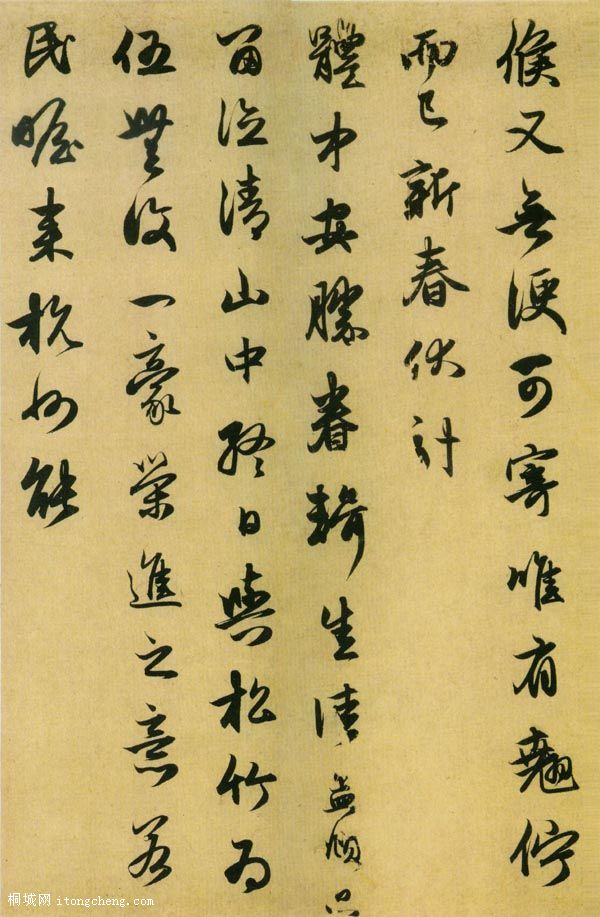 候又無便可寄唯有翹佇
而已新春伏計
體中安勝眷輯生清孟頫只
留德清山中終日與松竹為
伍無復一豪榮進之意若
民瞻来杭州能
桐城网 itongcheng.com